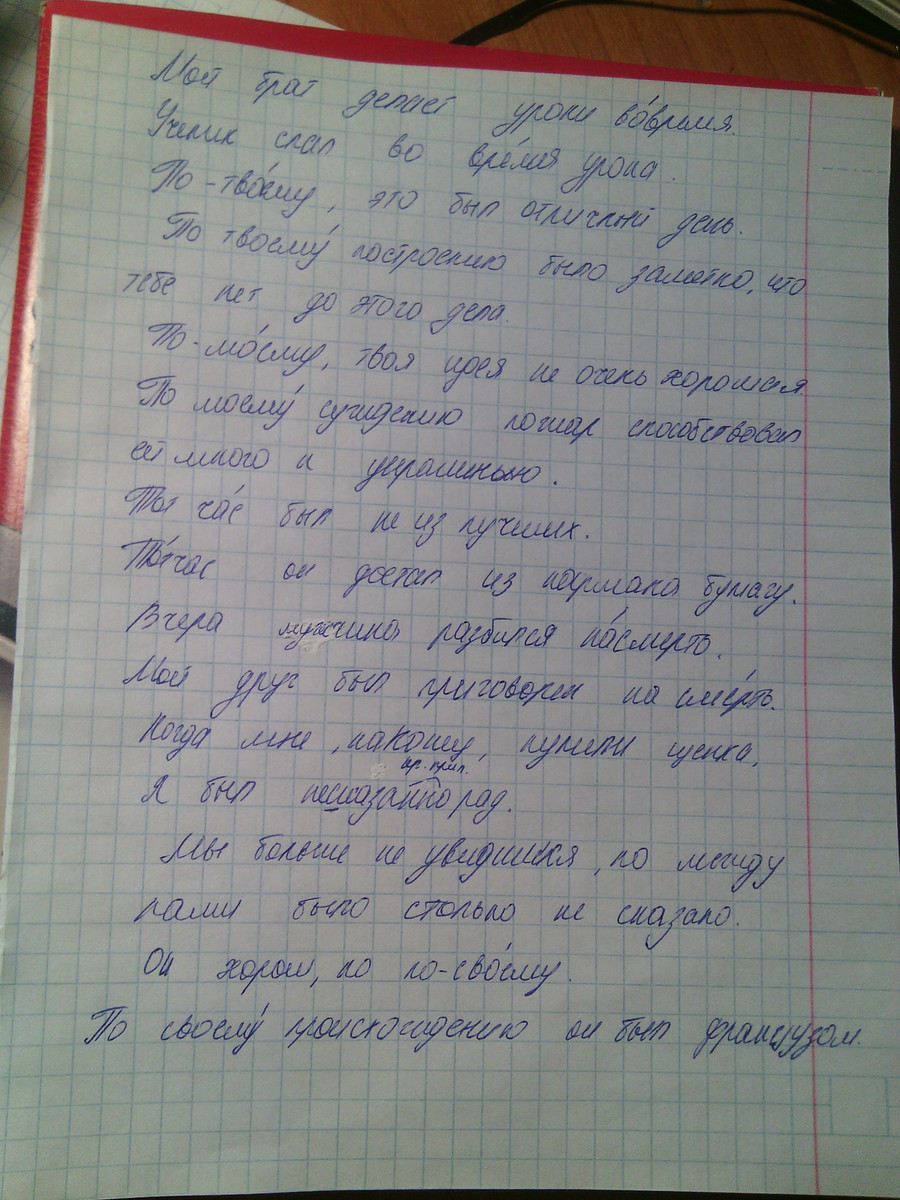 Мой брат делает уроки во́время.
Ученик спал во вре́мя урока.
По-тво́ему, это был отличный день.
По твоему́ построению было заметно, что
тебе нет до этого дела.
По-мо́ему, твоя идея не очень хорошая.
По моему́ суждению пожар способствовал
ей много к
Тот ча́с был не из лучших.
То́тчас он достал из кармана бумагу.
Вчера мужчина разбился на́смерть.
Мой друг был приговорен на сме́рть.
Когда мне, наконец, купили щенка,
кр. прил.
Я был несказанно рад.
Мы больше не увидимся, но между
нами было столько не сказано.
Он хорош, но по-сво́ему.
По своему́ происхождению он был французом.